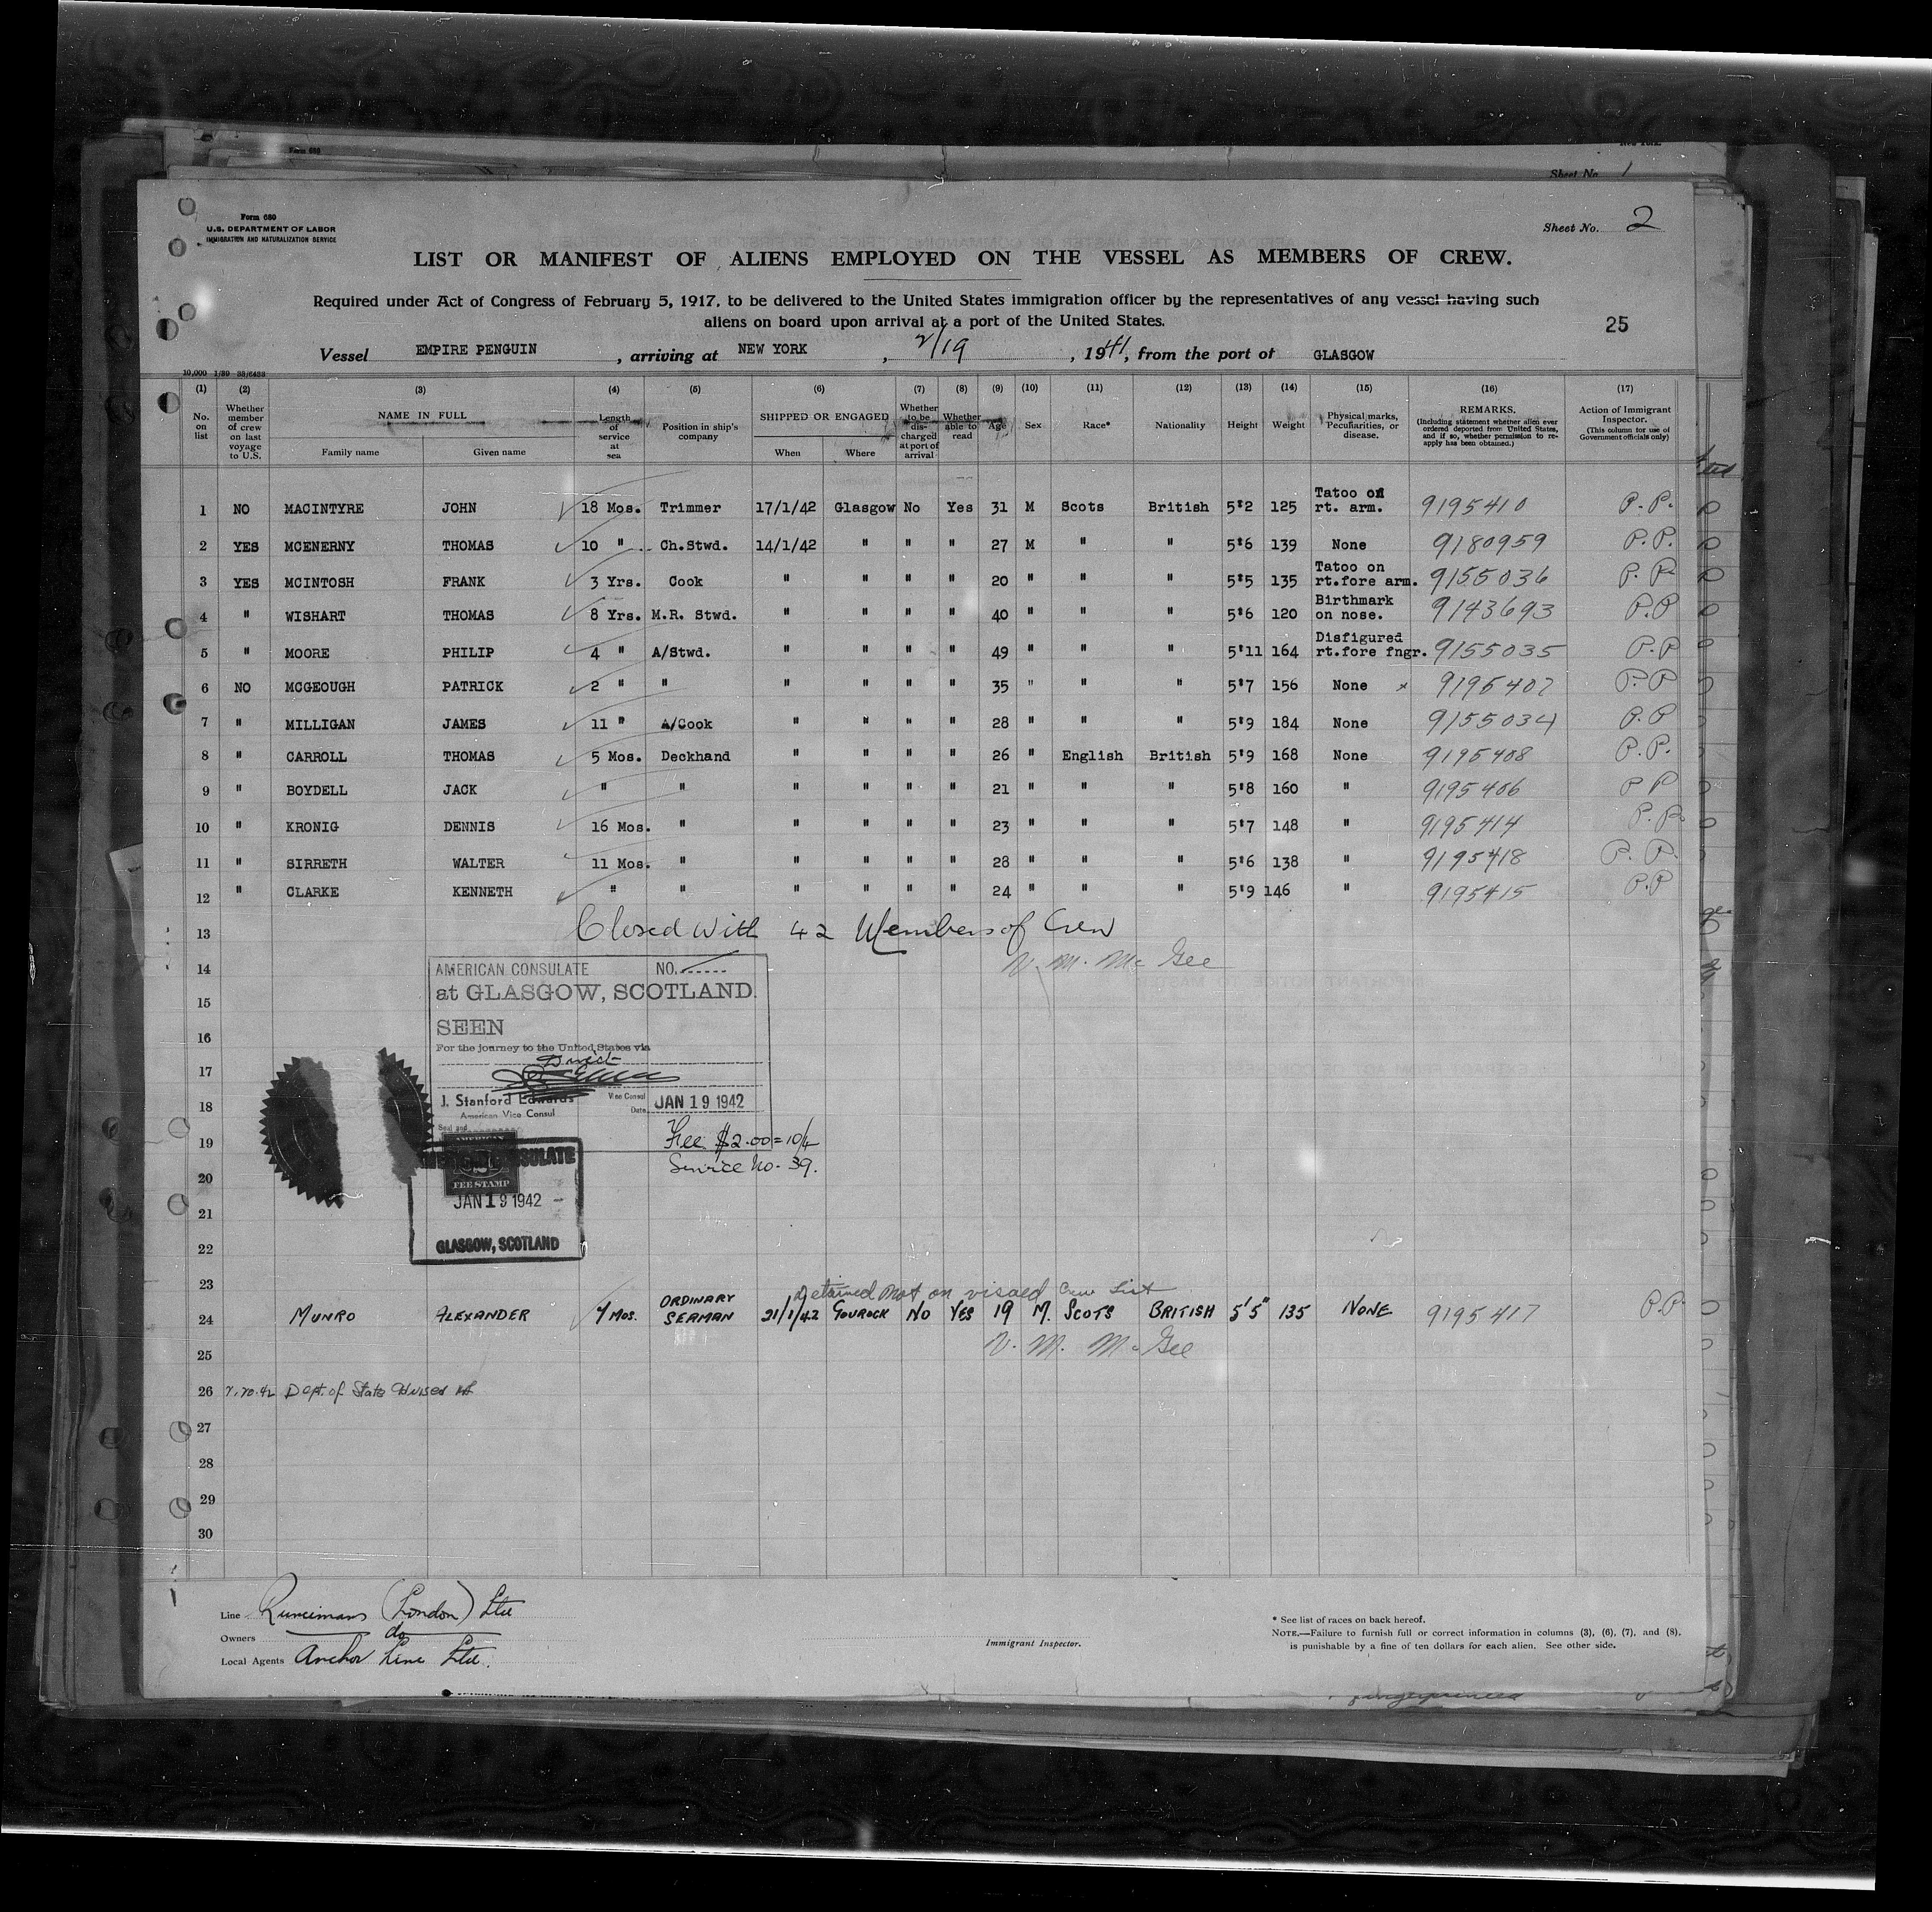 Form 689
Sheet No. 1
Form 680
U.S. DEPARTMENT OF LABOR
IMMIGRATION AND NATURALIZATION SERVICE
Sheet No. 2
LIST OR MANIFEST OF ALIENS EMPLOYED ON THE VESSEL AS MEMBERS OF CREW.
Required under Act of Congress of February 5, 1917, to be delivered to the United States immigration officer by the representatives of any vessel having such
aliens on board upon arrival at a port of the United States.
25
Vessel EMPIRE PENGUIN, arriving at NEW YORK, 2/19, 1941, from the port of GLASGOW
(1) (2) (3) (4) (5) (6) (7) (8) (9) (10) (11) (12) (13) (14) (15) (16) (17)
No. on list
Whether member of crew on last voyage to U.S.
NAME IN FULL
Family name
Given name
Length of service at sea
Position in ship's company
SHIPPED OR ENGAGED
When
Where
Whether to be discharged at port of arrival
Whether able to read
Age
Sex
Race*
Nationality
Height
Weight
Physical marks, Peculiarities, or disease.
REMARKS.
(Including statement whether alien ever ordered deported from United States, and if so, whether permission to reapply has been obtained.)
Action of Immigrant Inspector.
(This column for use of Government officials only)
1 NO MACINTYRE JOHN 18 Mos. Trimmer 17/1/42 Glasgow No Yes 31 M Scots British 5'2 125 Tatoo on rt. arm. 9195410 P.P.
2 YES MCENERNY THOMAS 10 " Ch.Stwd. 14/1/42 " " " 27 M " " 5'6 139 None 9180959 P.P.
3 YES MCINTOSH FRANK 3 Yrs. Cook " " " " 20 " " " 5'5 135 Tatoo on rt.fore arm. 9155036 P.P.
4 " WISHART THOMAS 8 Yrs. M.R. Stwd. " " " " 40 " " " 5'6 120 Birthmark on nose. 9143693 P.P
5 " MOORE PHILIP 4 " A/Stwd. " " " " 49 " " " 5'11 164 Disfigured rt.fore fngr. 9155035 P.P
6 NO MCGEOUGH PATRICK 2 " " " " " " 35 " " " 5'7 156 None x 9195407 P.P
7 " MILLIGAN JAMES 11 " A/Cook " " " " 28 " " " 5'9 184 None 9155034 P.P
8 " CARROLL THOMAS 5 Mos. Deckhand " " " " 26 " English British 5'9 168 None 9195408 P.P.
9 " BOYDELL JACK " " " " " " 21 " " " 5'8 160 " 9195406 P P
10 " KRONIG DENNIS 16 Mos. " " " " " 23 " " " 5'7 148 " 9195414 P.P.
11 " SIRRETH WALTER 11 Mos. " " " " " 28 " " " 5'6 138 " 9195418 P.P.
12 " CLARKE KENNETH " " " " " " 24 " " " 5'9 146 " 9195415 P.P
13 Closed with 42 Members of Crew
14 V. M. McGee
AMERICAN CONSULATE NO.
at GLASGOW, SCOTLAND.
15
SEEN
16
For the journey to the United States via
Direct
17
J. Stanford Edwards Vice Consul
American Vice Consul
Date JAN 19 1942
18
Seal and
19
Fee $2.00 = 10/4
Service No. 39.
20
AMERICAN CONSULATE
FEE STAMP
JAN 19 1942
21
GLASGOW, SCOTLAND
22
23 Detained not on visaed Crew List
24 MUNRO ALEXANDER 7 MOS. ORDINARY SEAMAN 21/1/42 GOUROCK NO YES 19 M. SCOTS BRITISH 5'5" 135 NONE 9195417 P.P.
25 V. M. McGee
26 Dept. of State Advised
27
28
29
30
Line Runcimans (London) Ltd
Owners do
Local Agents Anchor Line Ltd.
Immigrant Inspector.
* See list of races on back hereof.
NOTE.—Failure to furnish full or correct information in columns (3), (6), (7), and (8),
is punishable by a fine of ten dollars for each alien. See other side.